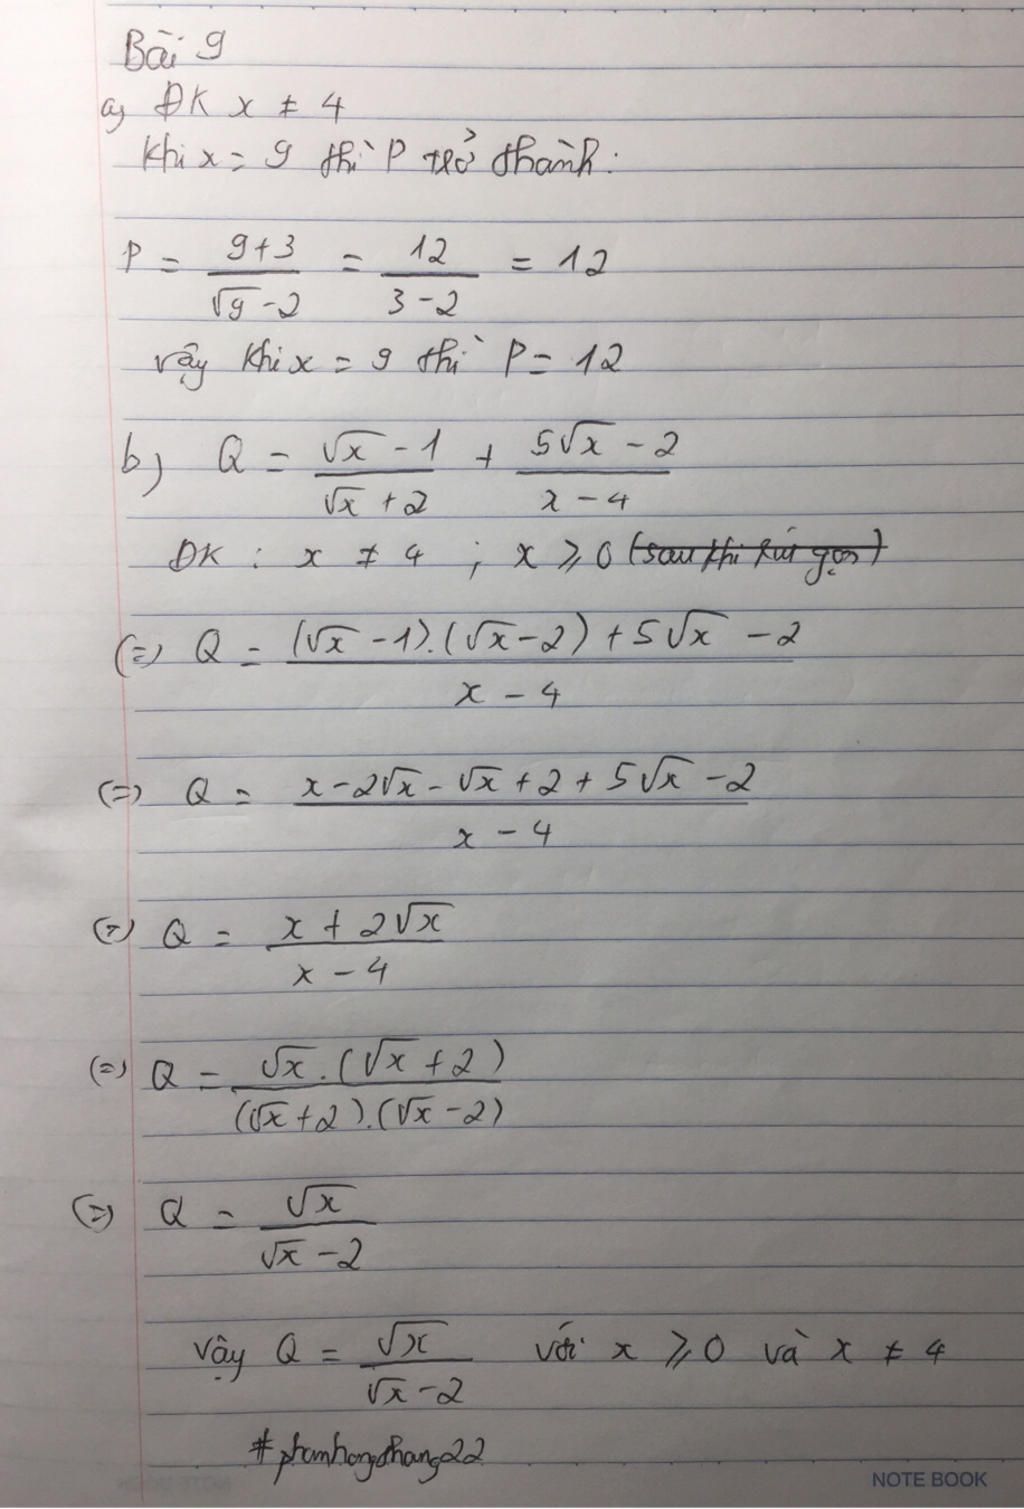 Bài 9
a) ĐK x ≠ 4
Khi x = 9 thì P trở thành:
P = (9+3)/(√9 - 2) = 12/(3 - 2) = 12
Vậy khi x = 9 thì P = 12
b) Q = (√x - 1)/(√x + 2) + (5√x - 2)/(x - 4)
ĐK : x ≠ 4 ; x ⩾ 0 (sau khi rút gọn)
(=) Q = ((√x - 1).(√x - 2) + 5√x - 2)/(x - 4)
(=) Q = (x - 2√x - √x + 2 + 5√x - 2)/(x - 4)
(=) Q = (x + 2√x)/(x - 4)
(=) Q = (√x.(√x + 2))/((√x + 2).(√x - 2))
(=) Q = √x/(√x - 2)
Vậy Q = √x/(√x - 2) với x ⩾ 0 và x ≠ 4
#phamhongthang22
NOTE BOOK